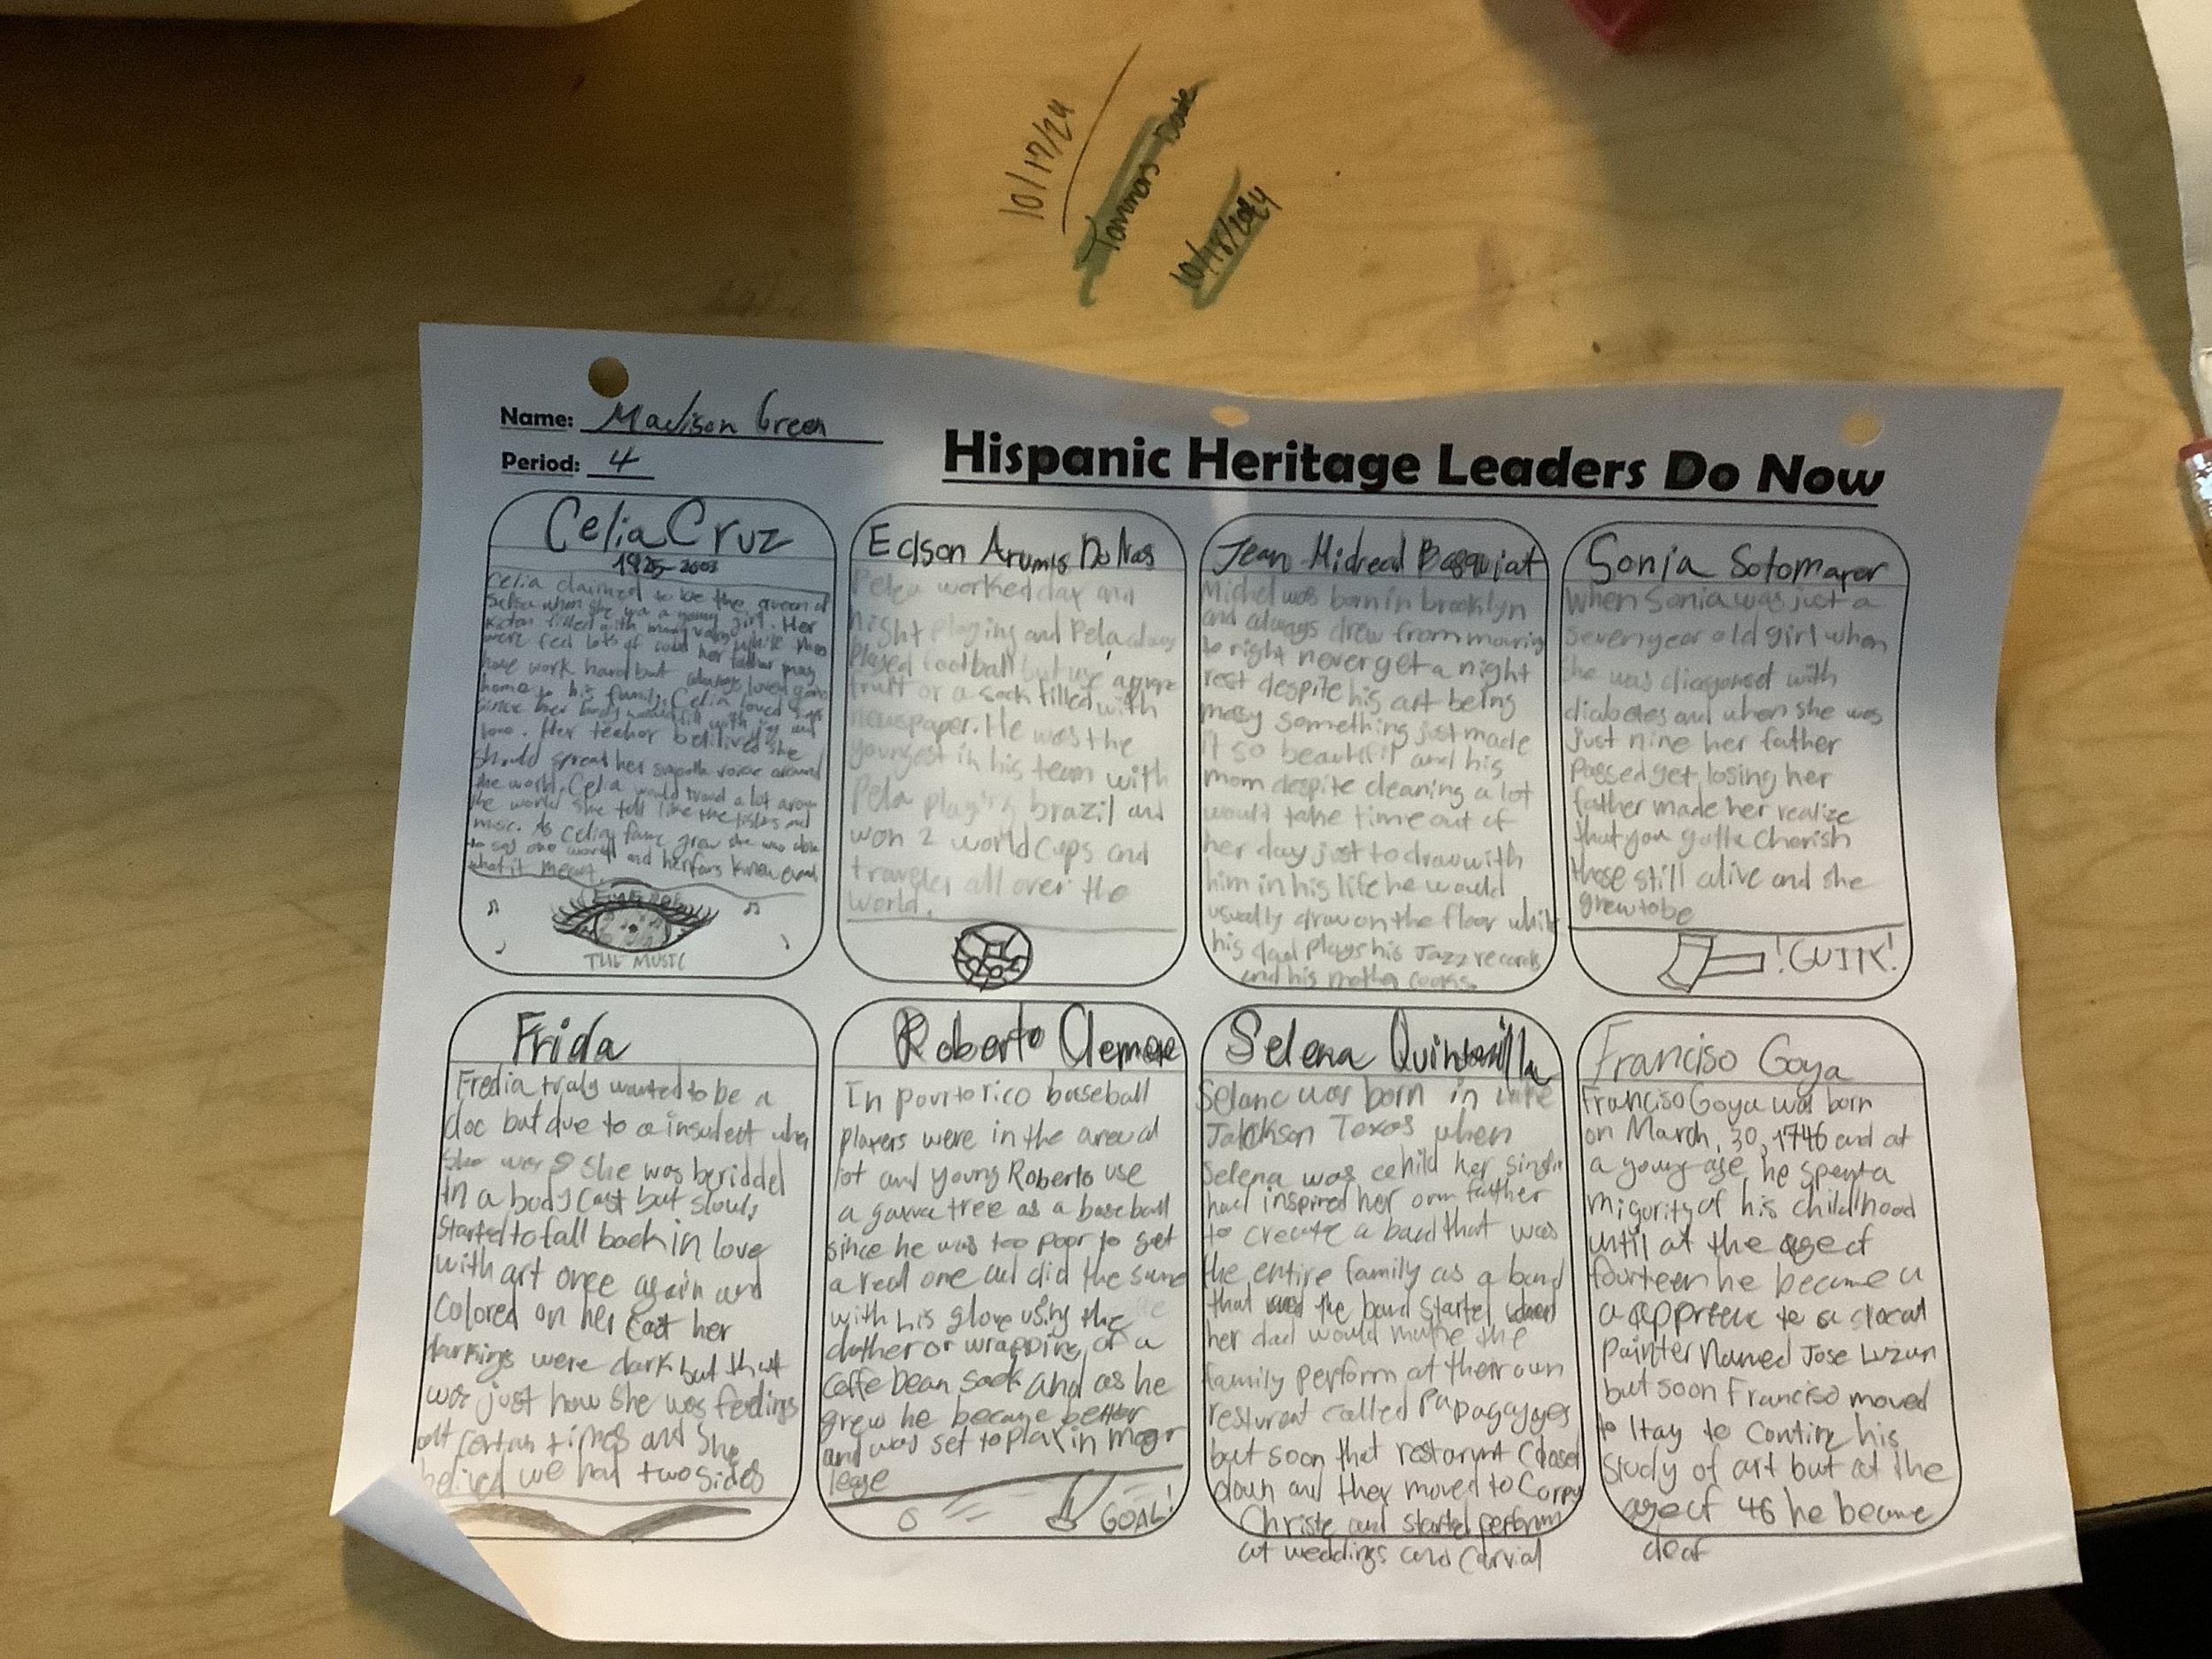 10/17/24
Date
10/18/2024
Name: Madison Green
Period: 4
Hispanic Heritage Leaders Do Now
Celia Cruz
1925-2003
Celia claimed to be the queen of
Selsa when she was a young girl. Her
filled with
were fed lots of her father may
have work hard but always loved
home to his family. Celia loved
since her body would fill with joy and
love. Her teacher belived she
should spread her voice around
the world. Celia would travel a lot around
the world she fell like the and
music. As Celia fame grew she was able
to say one word and her fans knew
what it meant.
THE MUSIC
Edson Arumis Do Nas
Pelea worked day and
night playing and Pela always
played football but use a
fruit or a sock filled with
newspaper. He was the
youngest in his team with
Pela playing brazil and
won 2 world cups and
traveler all over the
world.
Jean Basquiat
Michel was born in brooklyn
and always drew from
to right never get a night
rest despite his art being
messy something just made
it so and his
mom despite cleaning a lot
would take time out of
her day just to draw with
him in his life he would
usually draw on the floor while
his dad plays his Jazz records
and his mother cooks.
Sonia Sotomayor
When Sonia was just a
seven year old girl when
she was with
diabetes and when she was
just nine her father
passed yet, losing her
father made her realize
that you gotta cherish
those still alive and she
grew to be
Frida
Fredia truly wanted to be a
doc but due to a when
she was she was
in a body cast but slowly
started to fall back in love
with art once again and
colored on her cast her
were dark but that
was just how she was feelings
at certan times and she
belived we had two sides
Roberto
In baseball
players were in the area of
lot and young Roberto use
a tree as a baseball
since he was too poor to get
a real one and did the same
with his glove using the
or wrapping of a
caffe bean sack and as he
grew he became better
and was set to play in
leage
GOAL!
Selena Quintanilla
was born in
Texas when
Selena was child her
had inspired her own father
to create a band that was
the entire family as a band
that the band started when
her dad would make the
family perform at their own
called
but soon that closed
down and they moved to
Christe and started perform
at weddings and
Franciso Goya
Franciso Goya was born
on March, 30, 1746 and at
a young age, he spent a
of his childhood
until at the age of
fourteen he became a
a to a
painter Named Jose Luzan
but soon Franciso moved
to Itay to his
study of art but at the
age of 46 he became
deaf